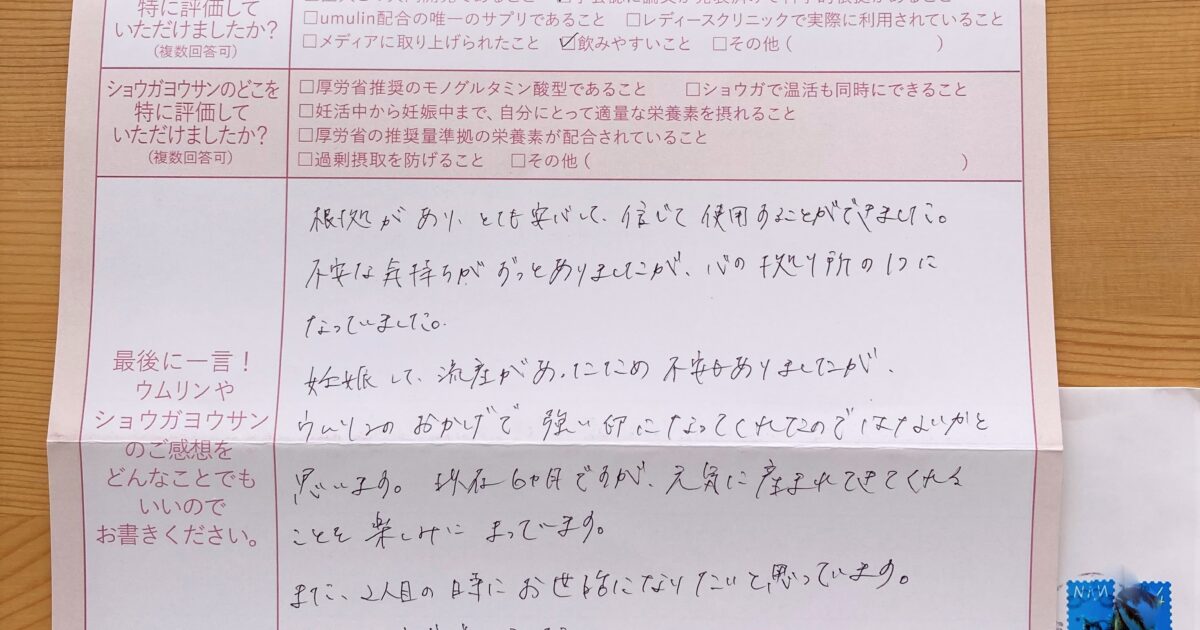 特に評価して
いただけましたか?
(複数回答可)
□umulin配合の唯一のサプリであること □レディースクリニックで実際に利用されていること
□メディアに取り上げられたこと ☑飲みやすいこと □その他 ( )
ショウガヨウサンのどこを
特に評価して
いただけましたか?
(複数回答可)
□厚労省推奨のモノグルタミン酸型であること □ショウガで温活も同時にできること
□妊活中から妊娠中まで、自分にとって適量な栄養素を摂れること
□厚労省の推奨量準拠の栄養素が配合されていること
□過剰摂取を防げること □その他 ( )
最後に一言!
ウムリンや
ショウガヨウサン
のご感想を
どんなことでも
いいので
お書きください。
根拠があり、とても安心して、信じて使用することができました。
不安な気持ちがずっとありましたが、心の拠り所の1つに
なっていました。
妊娠して、流産があったため不安もありましたが、
ウムリンのおかげで強い卵になってくれたのではないかと
思います。現在6ヶ月ですが、元気に産まれてきてくれる
ことを楽しみにまっています。
また、2人目の時にお世話になりたいと思っています。